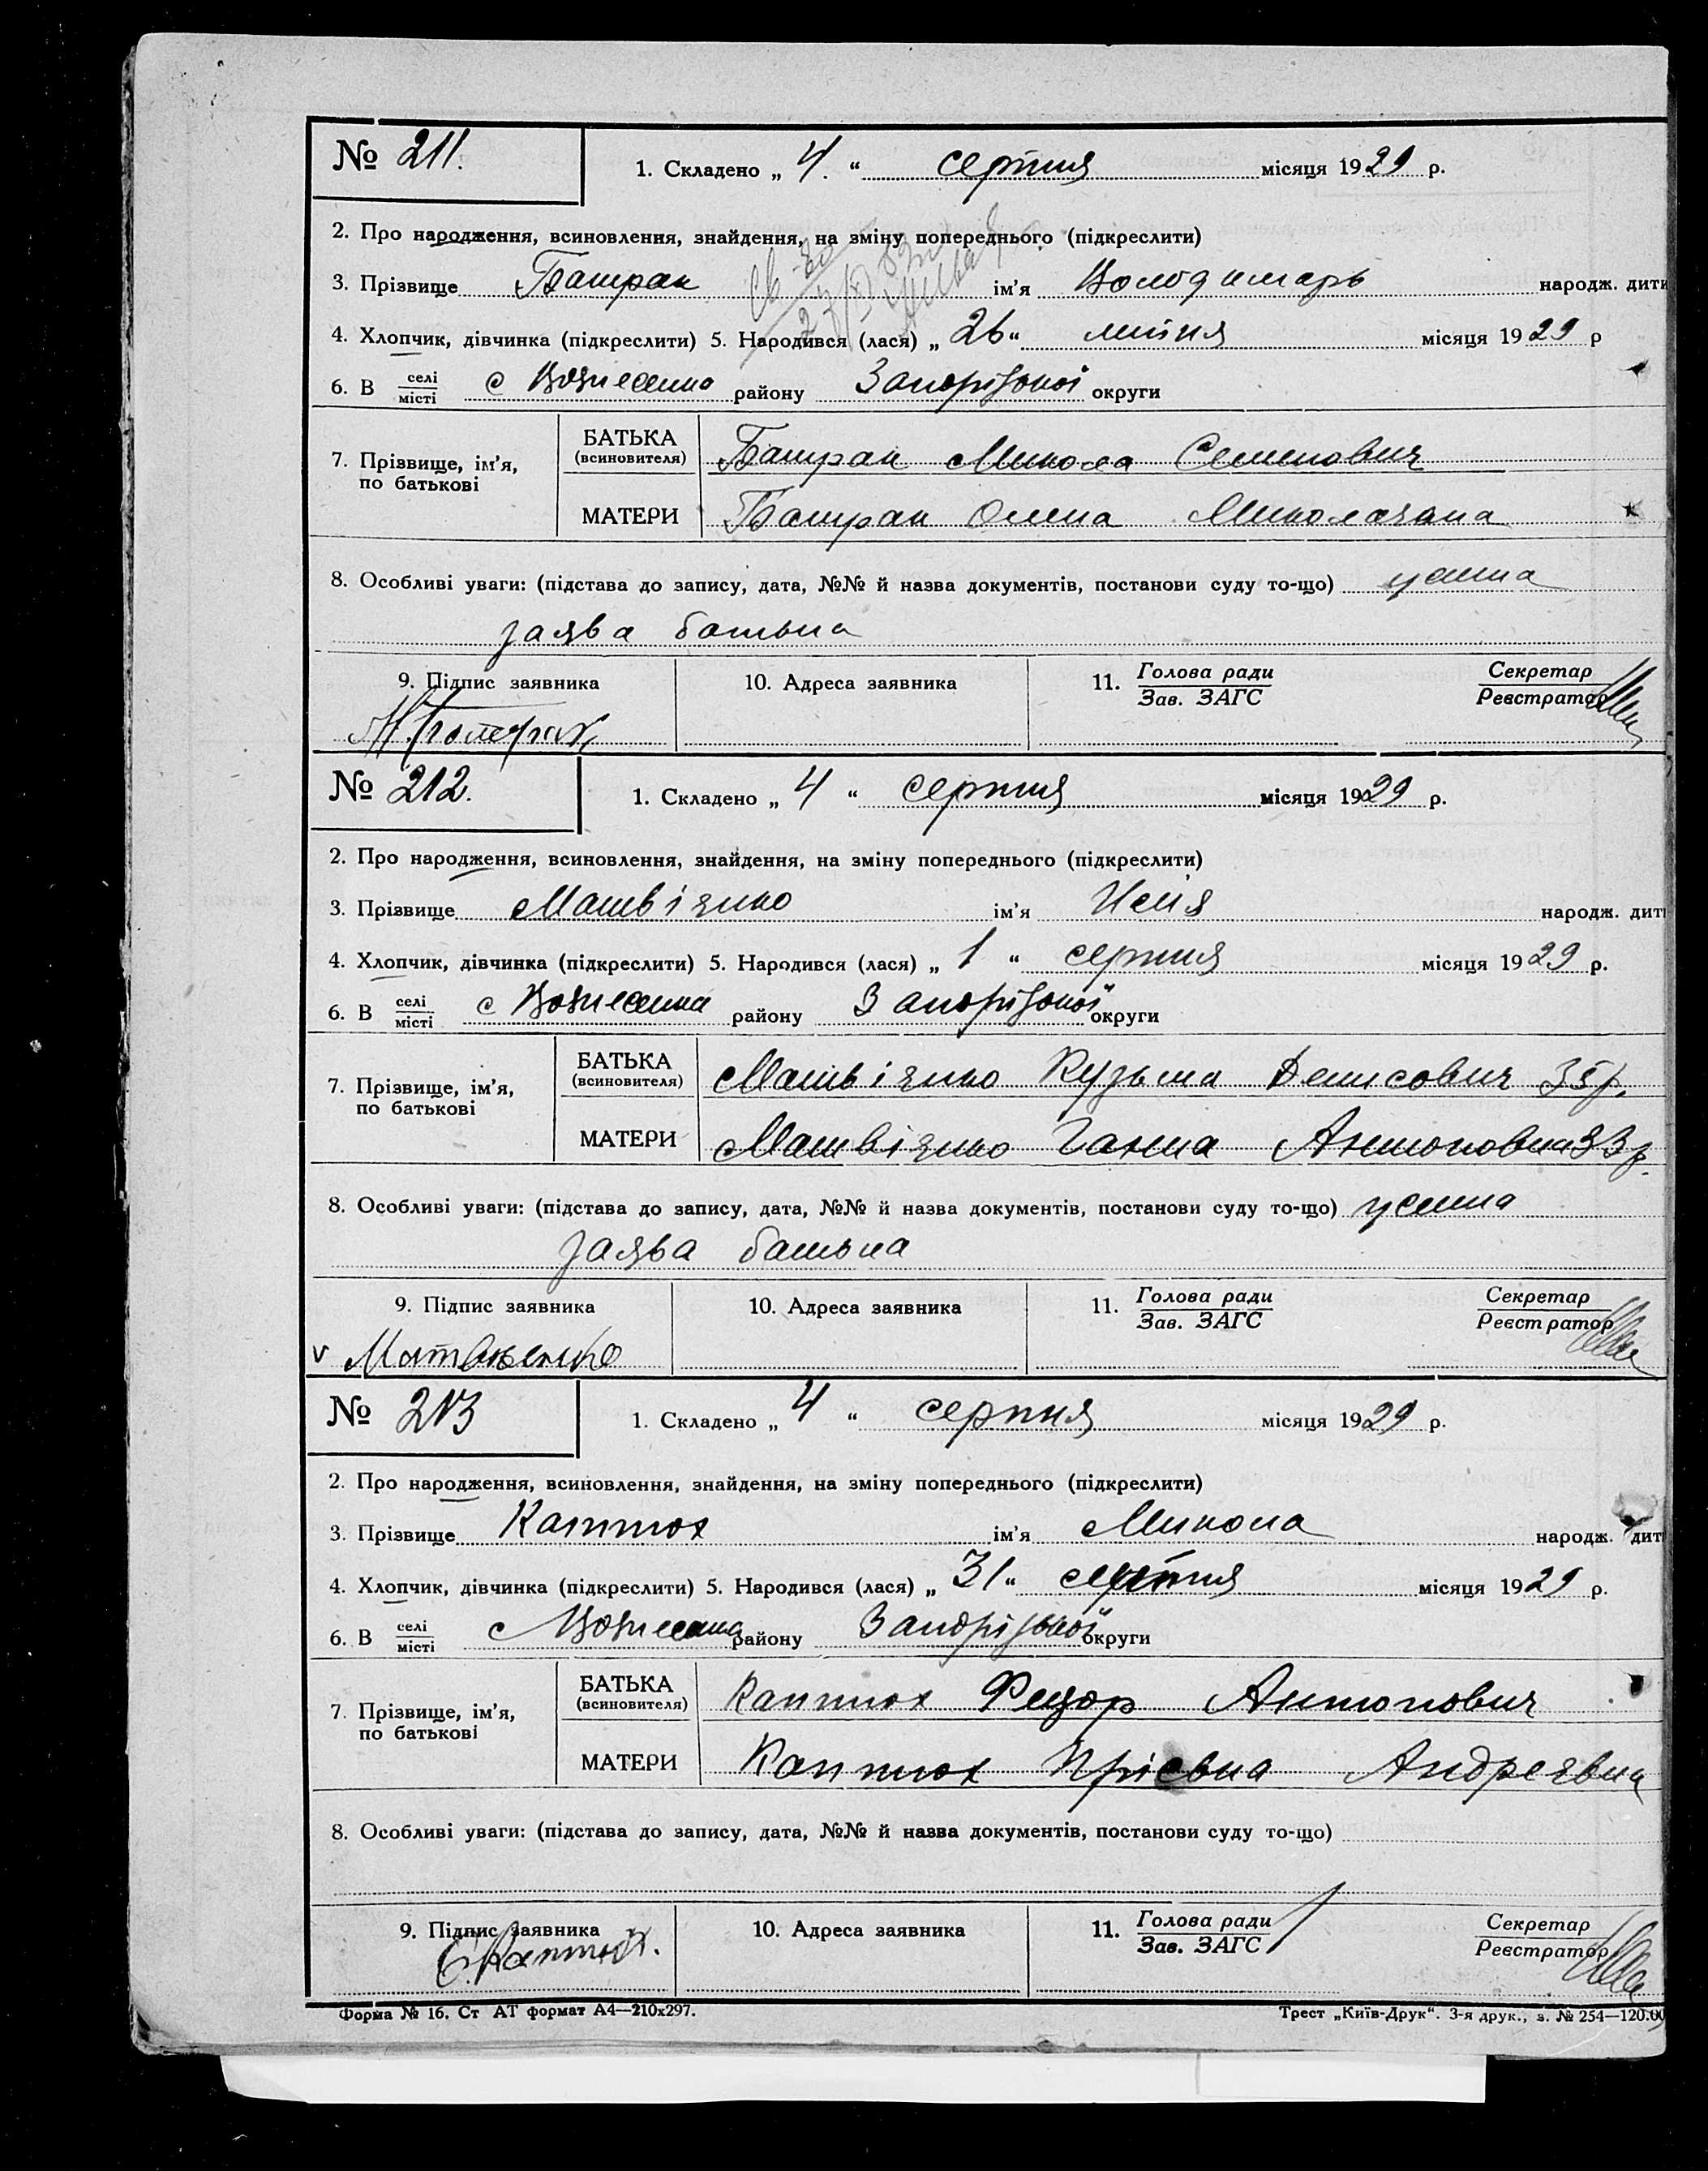 № 211. 1. Складено „ 4. “ серпня місяця 1929 р.
2. Про народження, всиновлення, знайдення, на зміну попереднього (підкреслити)
3. Прізвище Батрак ім'я Володимарь народж. дити
4. Хлопчик, дівчинка (підкреслити) 5. Народився (лася) „ 26 “ липня місяця 1929 р
6. В селі місті с Вознесенка району Запорізької округи
7. Прізвище, ім'я, по батькові БАТЬКА (всиновителя) Батрак Микола Семенович
МАТЕРИ Батрак Олена
8. Особливі уваги: (підстава до запису, дата, №№ й назва документів, постанови суду то-що) усна
заява батька
9. Підпис заявника 10. Адреса заявника 11. Голова ради Зав. ЗАГС Секретар Реєстратор
№ 212. 1. Складено „ 4 “ серпня місяця 1929 р.
2. Про народження, всиновлення, знайдення, на зміну попереднього (підкреслити)
3. Прізвище Матвієнко ім'я народж. дит
4. Хлопчик, дівчинка (підкреслити) 5. Народився (лася) „ 1 “ серпня місяця 1929 р.
6. В селі місті с Вознесенка району Запорізької округи
7. Прізвище, ім'я, по батькові БАТЬКА (всиновителя) Матвієнко Кузьма Денисович 35 р.
МАТЕРИ Матвієнко Ганна Антоновна 33 р
8. Особливі уваги: (підстава до запису, дата, №№ й назва документів, постанови суду то-що) усна
заява батька
9. Підпис заявника 10. Адреса заявника 11. Голова ради Зав. ЗАГС Секретар Реєстратор
v Матвъенко
№ 213 1. Складено „ 4 “ серпня місяця 1929 р.
2. Про народження, всиновлення, знайдення, на зміну попереднього (підкреслити)
3. Прізвище Каптюх ім'я Микола народж. дит
4. Хлопчик, дівчинка (підкреслити) 5. Народився (лася) „ 31 “ місяця 1929 р.
6. В селі місті с Вознесенка району Запорізької округи
7. Прізвище, ім'я, по батькові БАТЬКА (всиновителя) Каптюх Федор Антонович
МАТЕРИ Каптюх Андреевна
8. Особливі уваги: (підстава до запису, дата, №№ й назва документів, постанови суду то-що)
9. Підпис заявника 10. Адреса заявника 11. Голова ради Зав. ЗАГС Секретар Реєстратор
Каптюх.
Форма № 16. Ст АТ формат А4—210х297. Трест „Київ-Друк“. 3-я друк., з. № 254—120.00